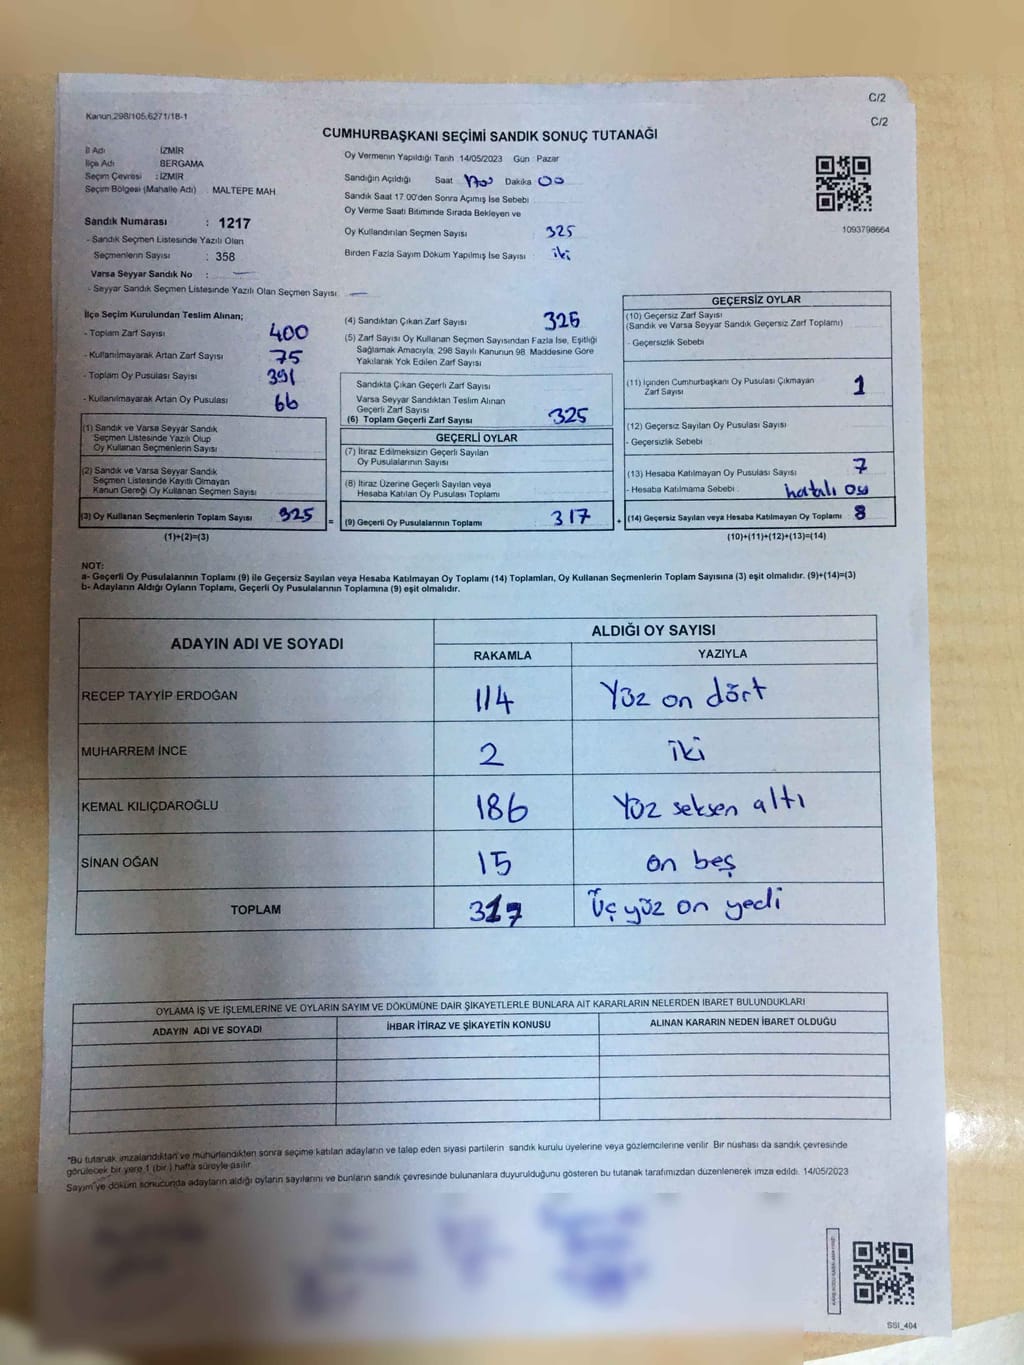 C/2
Kanun,298/105,6271/18-1
C/2
CUMHURBAŞKANI SEÇİMİ SANDIK SONUÇ TUTANAĞI
İl Adı İZMİR
İlçe Adı BERGAMA
Seçim Çevresi : İZMİR
Seçim Bölgesi (Mahalle Adı) MALTEPE MAH
Sandık Numarası : 1217
- Sandık Seçmen Listesinde Yazılı Olan
Seçmenlerin Sayısı : 358
Varsa Seyyar Sandık No : —
- Seyyar Sandık Seçmen Listesinde Yazılı Olan Seçmen Sayısı —
Oy Vermenin Yapıldığı Tarih 14/05/2023 Gün Pazar
Sandığın Açıldığı Saat Dakika 00
Sandık Saat 17.00'den Sonra Açılmış İse Sebebi
Oy Verme Saati Bitiminde Sırada Bekleyen ve
Oy Kullandırılan Seçmen Sayısı 325
Birden Fazla Sayım Döküm Yapılmış İse Sayısı iki
1093798664
İlçe Seçim Kurulundan Teslim Alınan;
- Toplam Zarf Sayısı 400
- Kullanılmayarak Artan Zarf Sayısı 75
- Toplam Oy Pusulası Sayısı 391
- Kullanılmayarak Artan Oy Pusulası 66
(1) Sandık ve Varsa Seyyar Sandık
Seçmen Listesinde Yazılı Olup
Oy Kullanan Seçmenlerin Sayısı
(2) Sandık ve Varsa Seyyar Sandık
Seçmen Listesinde Kayıtlı Olmayan
Kanun Gereği Oy Kullanan Seçmen Sayısı
(3) Oy Kullanan Seçmenlerin Toplam Sayısı 325
(1)+(2)=(3)
=
(4) Sandıktan Çıkan Zarf Sayısı 325
(5) Zarf Sayısı Oy Kullanan Seçmen Sayısından Fazla İse, Eşitliği
Sağlamak Amacıyla, 298 Sayılı Kanunun 98. Maddesine Göre
Yakılarak Yok Edilen Zarf Sayısı
Sandıkta Çıkan Geçerli Zarf Sayısı
Varsa Seyyar Sandıktan Teslim Alınan
Geçerli Zarf Sayısı
(6) Toplam Geçerli Zarf Sayısı 325
GEÇERLİ OYLAR
(7) İtiraz Edilmeksizin Geçerli Sayılan
Oy Pusulalarının Sayısı
(8) İtiraz Üzerine Geçerli Sayılan veya
Hesaba Katılan Oy Pusulası Toplamı
(9) Geçerli Oy Pusulalarının Toplamı 317
+
GEÇERSİZ OYLAR
(10) Geçersiz Zarf Sayısı
(Sandık ve Varsa Seyyar Sandık Geçersiz Zarf Toplamı)
- Geçersizlik Sebebi
(11) İçinden Cumhurbaşkanı Oy Pusulası Çıkmayan
Zarf Sayısı 1
(12) Geçersiz Sayılan Oy Pusulası Sayısı
- Geçersizlik Sebebi
(13) Hesaba Katılmayan Oy Pusulası Sayısı 7
- Hesaba Katılmama Sebebi hatalı oy
(14) Geçersiz Sayılan veya Hesaba Katılmayan Oy Toplamı 8
(10)+(11)+(12)+(13)=(14)
NOT:
a- Geçerli Oy Pusulalarının Toplamı (9) ile Geçersiz Sayılan veya Hesaba Katılmayan Oy Toplamı (14) Toplamları, Oy Kullanan Seçmenlerin Toplam Sayısına (3) eşit olmalıdır. (9)+(14)=(3)
b- Adayların Aldığı Oyların Toplamı, Geçerli Oy Pusulalarının Toplamına (9) eşit olmalıdır.
ADAYIN ADI VE SOYADI ALDIĞI OY SAYISI
RAKAMLA YAZIYLA
RECEP TAYYİP ERDOĞAN 114 Yüz on dört
MUHARREM İNCE 2 iki
KEMAL KILIÇDAROĞLU 186 Yüz seksen altı
SİNAN OĞAN 15 on beş
TOPLAM 317 Üç yüz on yedi
OYLAMA İŞ VE İŞLEMLERİNE VE OYLARIN SAYIM VE DÖKÜMÜNE DAİR ŞİKAYETLERLE BUNLARA AİT KARARLARIN NELERDEN İBARET BULUNDUKLARI
ADAYIN ADI VE SOYADI İHBAR İTİRAZ VE ŞİKAYETİN KONUSU ALINAN KARARIN NEDEN İBARET OLDUĞU
*Bu tutanak imzalandıktan ve mühürlendikten sonra seçime katılan adayların ve talep eden siyasi partilerin sandık kurulu üyelerine veya gözlemcilerine verilir. Bir nüshası da sandık çevresinde
görülecek bir yere 1 (bir) hafta süreyle asılır.
Sayım ve döküm sonucunda adayların aldığı oyların sayılarını ve bunların sandık çevresinde bulunanlara duyurulduğunu gösteren bu tutanak tarafımızdan düzenlenerek imza edildi. 14/05/2023
SSI_404